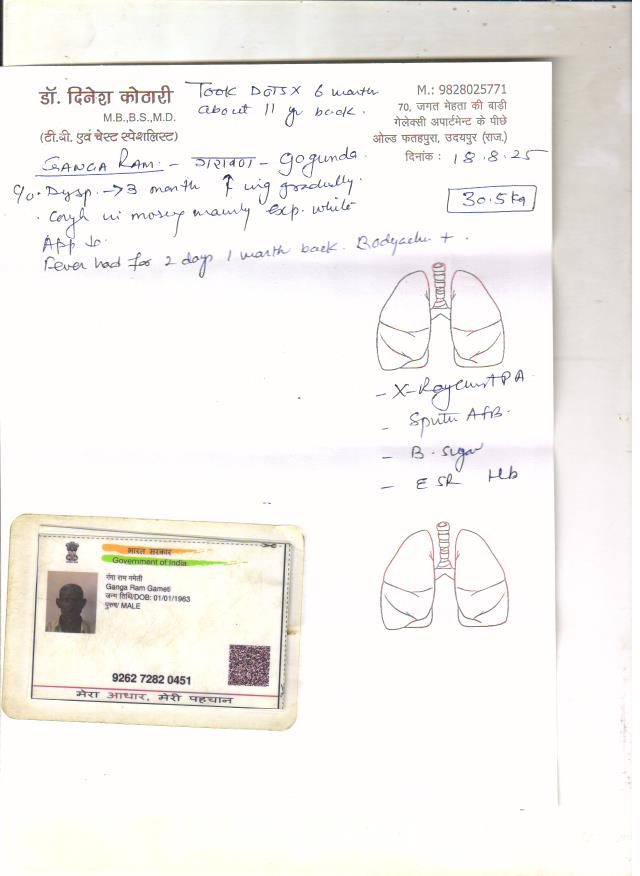 डॉ. दिनेश कोठारी
M.B.,B.S.,M.D.
(टी.बी. एवं चेस्ट स्पेशलिस्ट)
Took DOTS X 6 month
about 11 yr back.
M.: 9828025771
70, जगत मेहता की बाड़ी
गेलेक्सी अपार्टमेन्ट के पीछे
ओल्ड फतहपुरा, उदयपुर (राज.)
दिनांक : 18.8.25
GANGA RAM. – – Gogunda.
C/o. Dysp. → 3 month ↑ing gradually.
30.5 kg
. Cough in mainly exp. white
App ↓o.
Fever had for 2 days 1 month back. Bodyache + .
– X-Ray Chest PA.
– Sputm AFB.
– B. Sugar
– ESR Hb
भारत सरकार
Government of India
गंगा राम गमेती
Ganga Ram Gameti
जन्म तिथि/DOB: 01/01/1963
पुरुष/ MALE
9262 7282 0451
मेरा आधार, मेरी पहचान